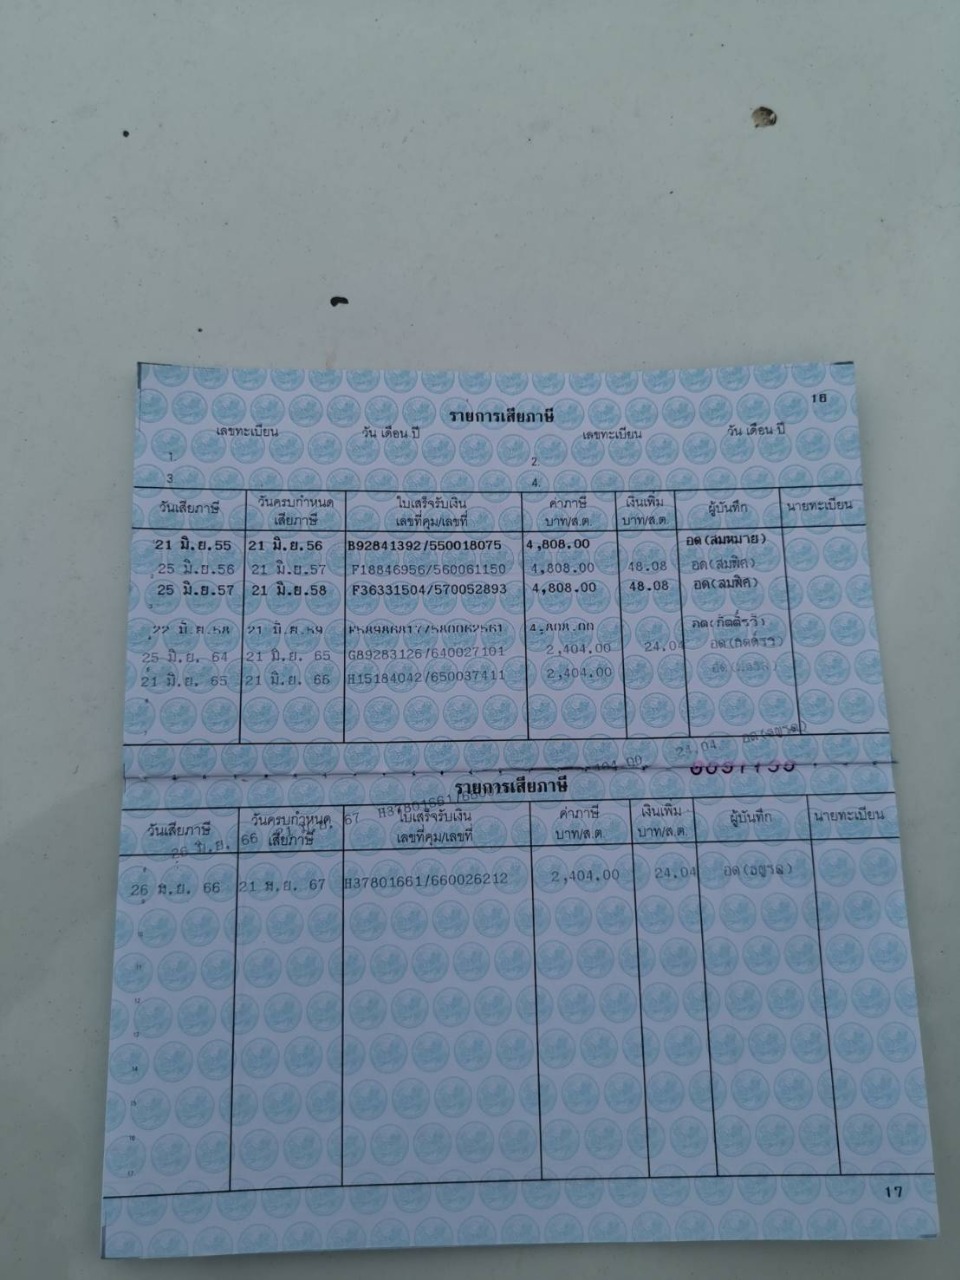 16
รายการเสียภาษี
เลขทะเบียน วัน เดือน ปี เลขทะเบียน วัน เดือน ปี
1. 2.
3. 4.
วันเสียภาษี วันครบกำหนดเสียภาษี ใบเสร็จรับเงิน เลขที่คุม/เลขที่ ค่าภาษี บาท/ส.ต. เงินเพิ่ม บาท/ส.ต. ผู้บันทึก นายทะเบียน
21 มิ.ย.55 21 มิ.ย.56 B92841392/550018075 4,808.00 อด(สมหมาย)
25 มิ.ย.56 21 มิ.ย.57 F18846956/560061150 4,808.00 48.08 อด(สมพิศ)
25 มิ.ย.57 21 มิ.ย.58 F36331504/570052893 4,808.00 48.08 อด(สมพิศ)
22 มิ.ย.58 21 มิ.ย.59 4,808.00
25 มิ.ย. 64 21 มิ.ย. 65 G89283126/640027101 2,404.00 24.04
21 มิ.ย. 65 21 มิ.ย. 66 H15184042/650037411 2,404.00
24.04
รายการเสียภาษี
67 H37801661/
วันเสียภาษี วันครบกำหนดเสียภาษี ใบเสร็จรับเงิน เลขที่คุม/เลขที่ ค่าภาษี บาท/ส.ต. เงินเพิ่ม บาท/ส.ต. ผู้บันทึก นายทะเบียน
26 มิ.ย. 66
26 มิ.ย. 66 21 มิ.ย. 67 H37801661/660026212 2,404.00 24.04
10
11
12
13
14
15
16
17
17